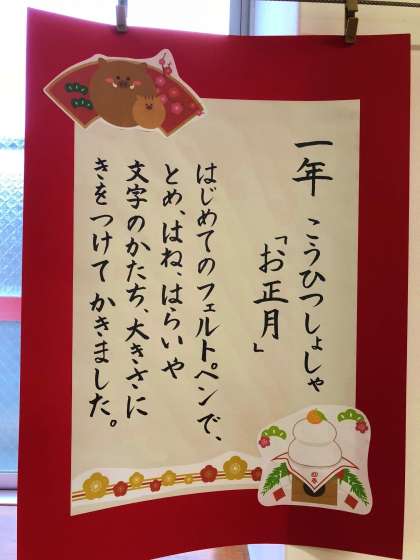 一年 こうひつしょしゃ
「お正月」
はじめてのフェルトペンで、
とめ、はね、はらいや
文字のかたち、大きさに
きをつけてかきました。